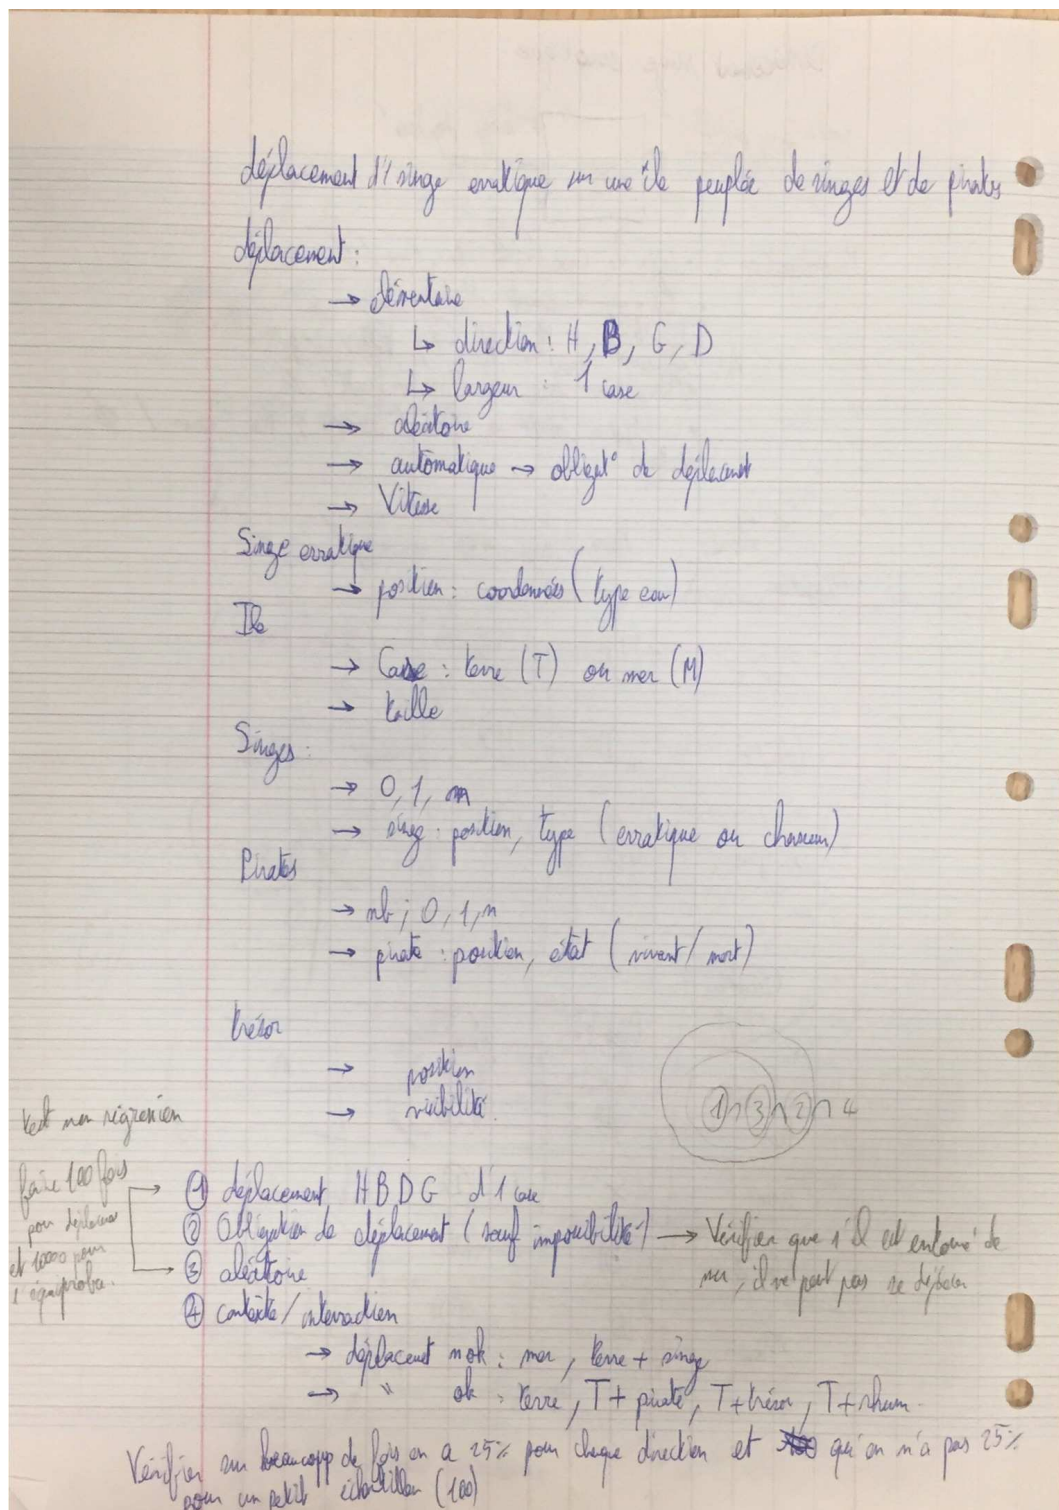 déplacement d'1 singe erratique sur une île peuplée de singes et de pirates
déplacement :
→ élémentaire
↳ direction : H, B, G, D
↳ largeur : 1 case
→ aléatoire
→ automatique → obligat° de déplacement
→ Vitesse
Singe erratique
→ position : coordonnées (type)
Ile
→ Case : terre (T) ou mer (M)
→ taille
Singes :
→ 0, 1, n
→ singe : position, type (erratique ou chasseur)
Pirates
→ nb ; 0, 1, n
→ pirate : position, état (vivant/mort)
trésor
→ position
→ visibilité.
① ∩ ③ ∩ ② ∩ 4
test non régression
faire 100 fois
pour déplacement
et 1000 pour
l'équiproba.
① déplacement H B D G d'1 case
② Obligation de déplacement (sauf impossibilité) → Vérifier que s'il est entouré de
mer, il ne peut pas se déplacer
③ aléatoire
④ contexte/interaction
→ déplacement nok : mer, terre + singe
→ " ok : terre, T + pirate, T + trésor, T + rhum.
Vérifier sur beaucoup de fois on a 25% pour chaque direction et qu'on n'a pas 25%
pour un petit échantillon (100)